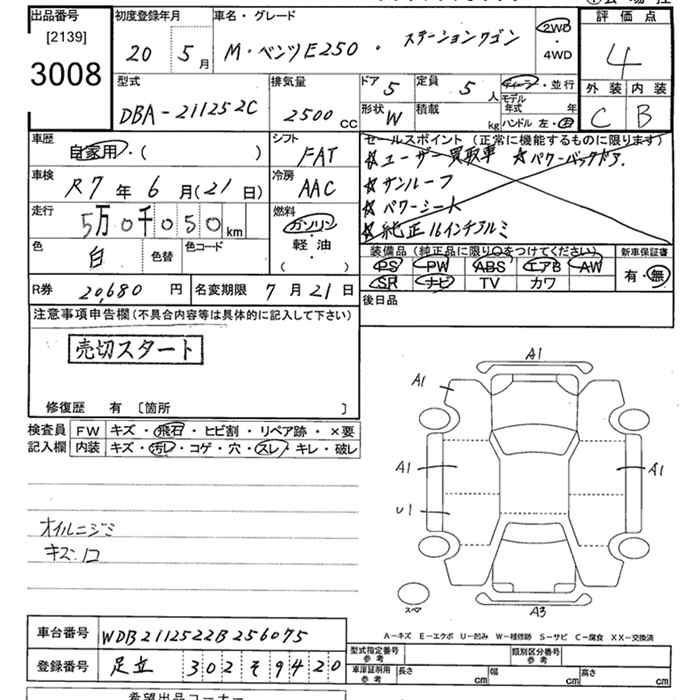 出品番号
[2139]
3008
初度登録年月
20 5 月
車名・グレード
M・ベンツE250 ・ ステーションワゴン
2WD
・
4WD
評価点
4
型式
DBA-211252C
排気量
2500 CC
ドア 5
定員 5 人
ディーラー・並行
モデル年式 年
形状 W
積載 kg
ハンドル 左・右
外装 内装
C B
車歴
自家用・( )
シフト
FAT
車検
R7 年 6 月(21 日)
冷房
AAC
走行
5万0千050 km
燃料
ガソリン
・
軽油
( )
色
白
色替
色コード
セールスポイント (正常に機能するものに限ります)
☆ユーザー買取車 ☆パワーバックドア.
☆サンルーフ
☆パワーシート
☆純正16インチアルミ
装備品(純正品に限り○をつけてください)
PS PW ABS エアB AW
SR ナビ TV カワ
新車保証書
有・無
R券 20,680 円
名変期限 7 月 21 日
後日品
注意事項申告欄(不具合内容等は具体的に記入して下さい)
売切スタート
修復歴 有 〔箇所 〕
検査員記入欄
FW キズ・飛石・ヒビ割・リペア跡・×要
内装 キズ・汚レ・コゲ・穴・スレ・キレ・破レ
オイルニジミ
キズ.凹
A1
A1
A1
A1
U1
スペア
A3
A-キズ E-エクボ U-凹み W-補修跡 S-サビ C-腐食 XX-交換済
車台番号 WDB2112522B256075
登録番号 足立 302 そ 9420
型式指定番号 参考
類別区分番号 参考
車庫証明用 参考
長さ cm 幅 cm 高さ cm
希望出品コーナー